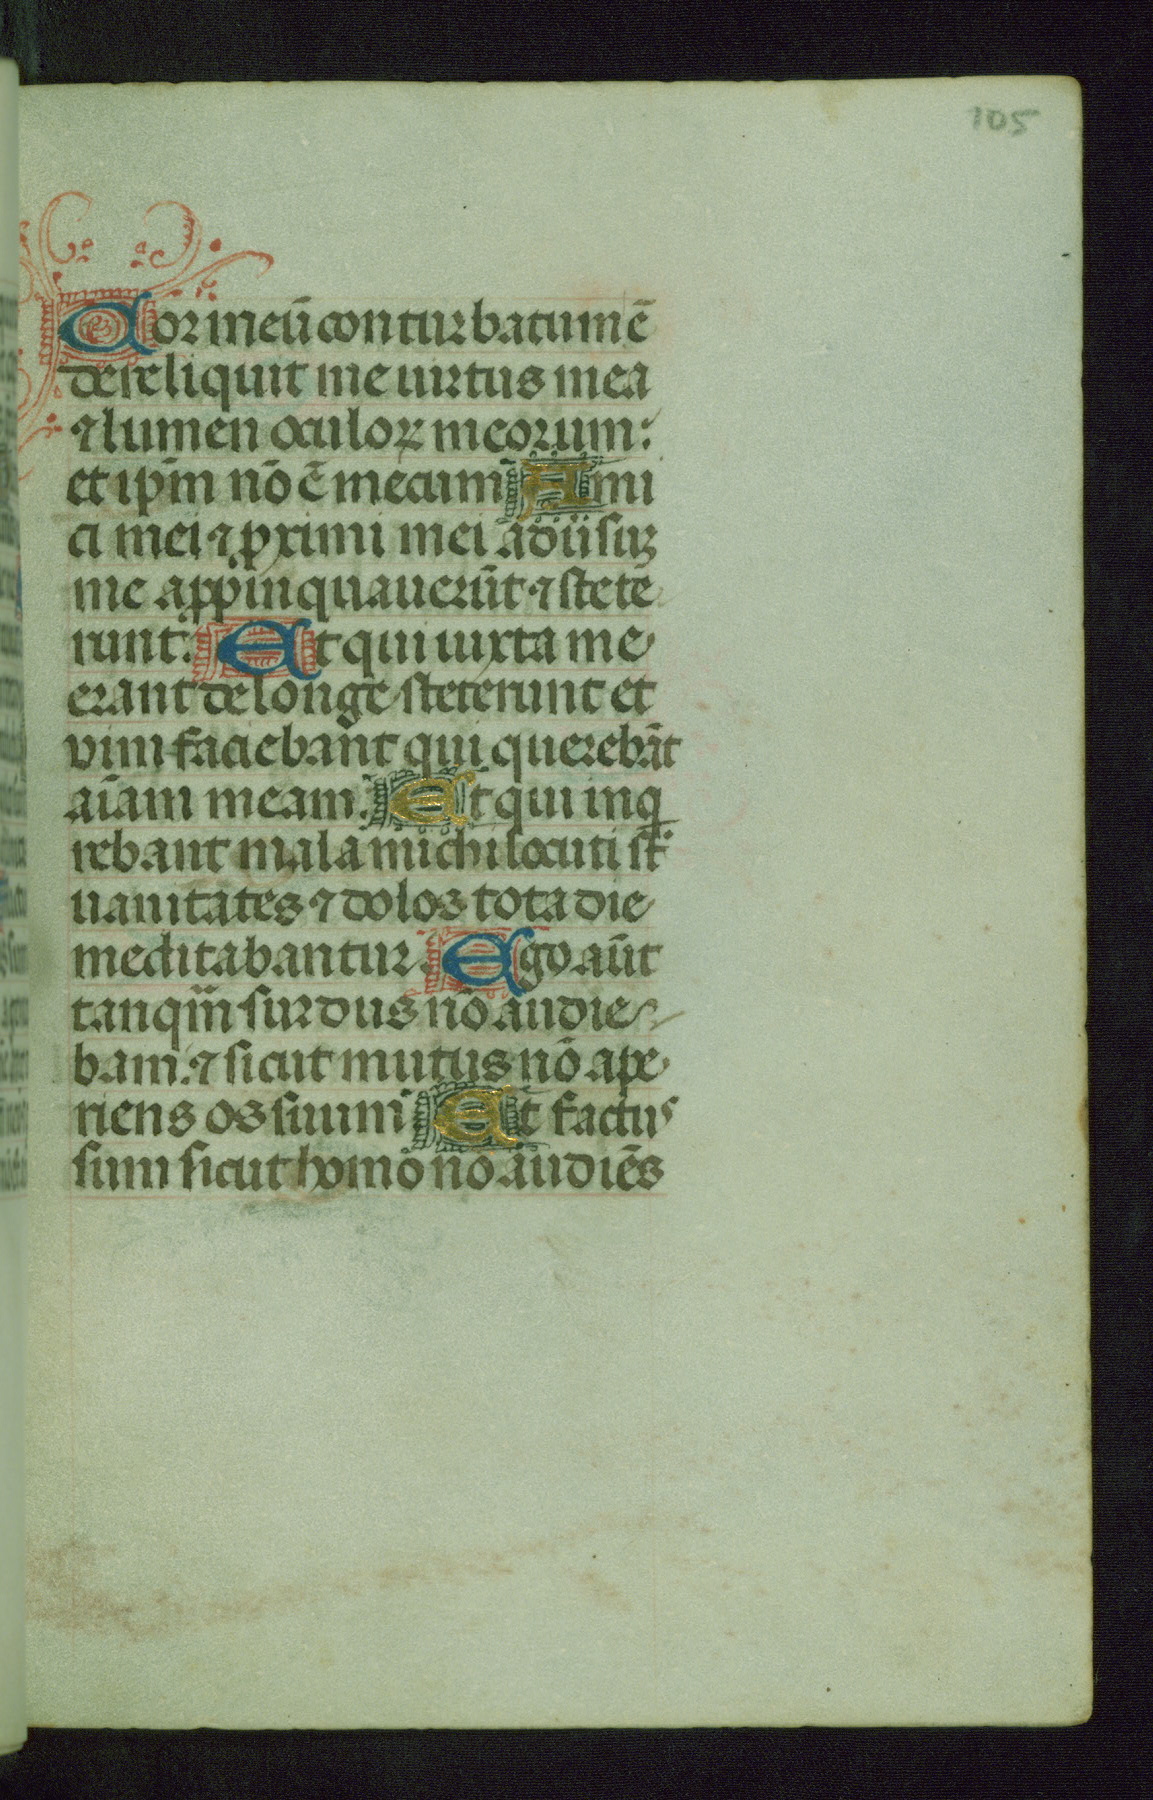 105
Cor meū conturbatum ē
dereliquit me uirtus mea
⁊ lumen oculoꝝ meorum:
et ip̄m nō ē mecum Ami
ci mei ⁊ ꝓximi mei aduersuꝫ
me appinquauerūt ⁊ stete
runt: Et qui iuxta me
erant de longe steterunt et
vim faciebant qui querebāt
aīam meam. Et qui inq̄
rebant mala michi locuti st̄
uanitates ⁊ dolos tota die
meditabantur. Ego aūt
tanq̄m surdus nō audie
bam: ⁊ sicut mutus nō ape
riens os suum Et factus
sum sicut homo nō audiēs